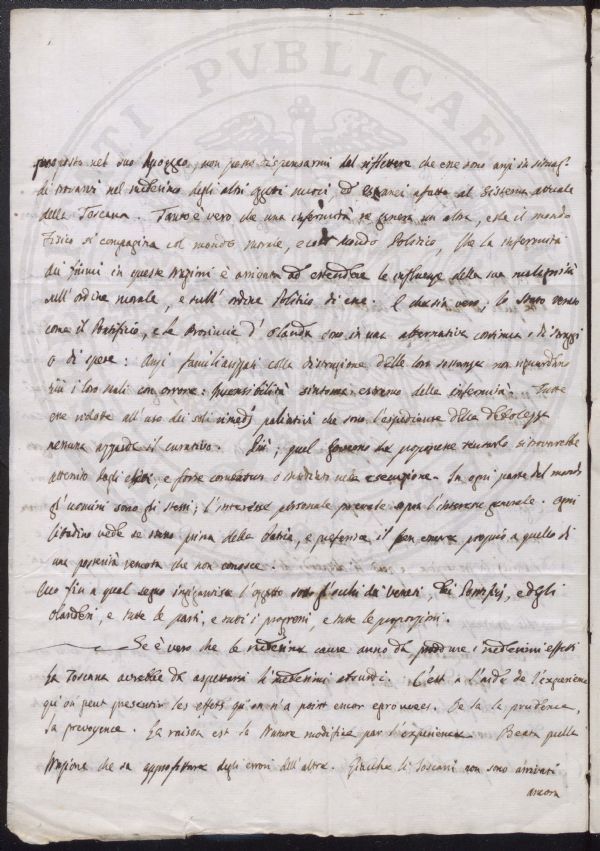 PVBLICAE
proposto nel suo Apogeo, non posso dispensarmi del riflettere che esse sono anzi in
di novanzi nel medesimo degli altri oggetti nuovi, ed estranei affatto al sistema attuale
della Toscana. Tanto è vero che una infermità ne genera un altra, e che il mondo
Fisico si compagina col mondo morale, e col Mondo Politico, che la infermità
dei fiumi in queste Nazioni è arrivata ad estendere le influenze della sua malignità
sull'ordine morale, e sull'ordine Politico di esse. E che sia vero; lo stato veneto
come il Pontificio, e le Provincie d'Olanda sono in una alternativa continua, di
o di spese: Anzi familiarizzati colla distruzione delle loro sostanze non riguardano
più i loro mali con orrore: sintoma estremo della infermità. Tutte
esse ridotte all'uso dei soli rimedj paliativi che sono l'espediente della debolezza
nessuna il curativo. Più; quel Governo che proponesse si troverebbe
atterrito dagli e forse combattuto o nella esecuzione. In ogni parte del mondo
gl'uomini sono gli stessi; l'interesse personale prevale sopra l'interesse generale. Ogni
Cittadino vede se stesso prima della Patria, e preferisce il ben essere proprio a quello di
una posterità remota che non conosce.
Ecco fin a qual segno l'oggetto sotto gl'occhi dei veneti dei Pontificj, e degli
Olandesi, e tutte le parti, e tutti i progressi, e tutte le proporzioni.
Se è vero che le medesime cause anno da produrre i medesimi effetti
la Toscana avrebbe da aspettarsi li medesimi assurdi. C'est a l'aide de l'experience
qu'on peut pressentir les effets qu'on n'a point encor eprouvees. De la la prudence,
la prevoyence. La raison est la Nature modifiée par l'experience. Beata quella
Nazione che sa approfittare degli errori dell'altre. Giacche li Toscani non sono arrivati
ancora